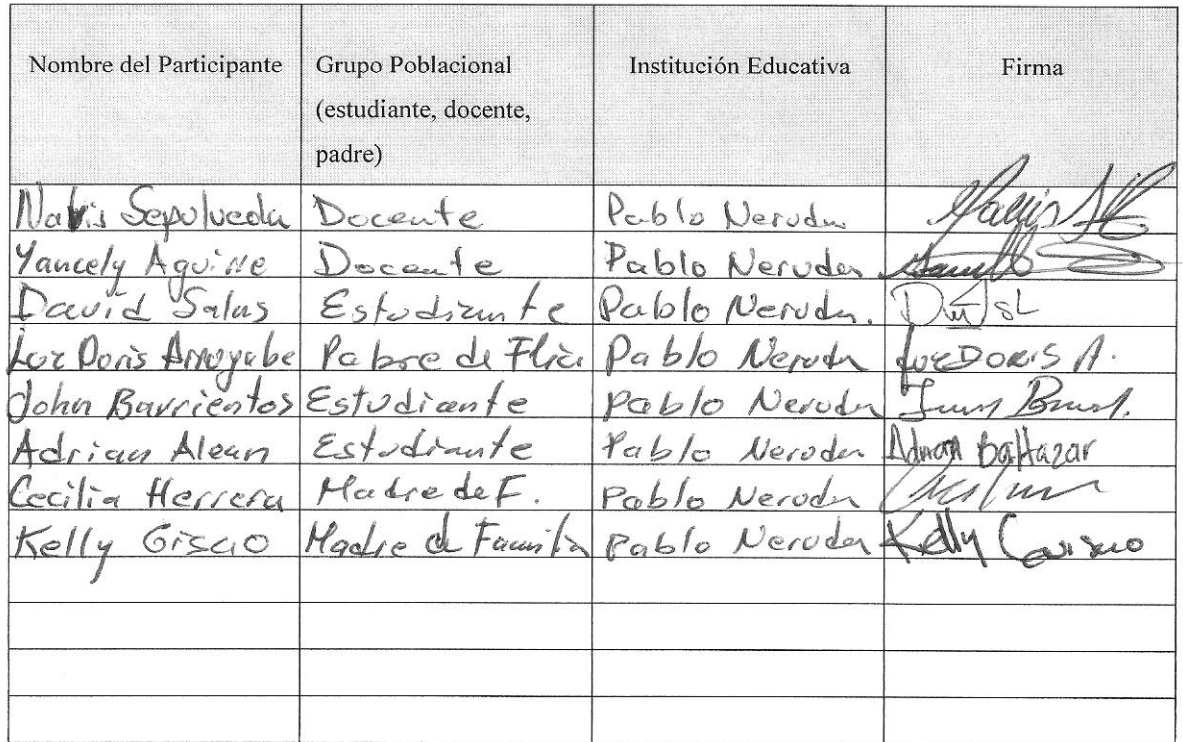 Nombre del Participante Grupo Poblacional (estudiante, docente, padre) Institución Educativa Firma
Navis Sepulveda Docente Pablo Neruda
Yancely Aguirre Docente Pablo Neruda
David Salas Estudiante Pablo Neruda.
Luz Doris Arroyabe Pabre de Flia Pablo Neruda Luz DORIS A.
John Barrientos Estudiante Pablo Neruda
Adrian Alean Estudiante Pablo Neruda Adrian Baltazar
Cecilia Herrera Madre de F. Pablo Neruda
Kelly Giscio Madre de Familia Pablo Neruda Kelly